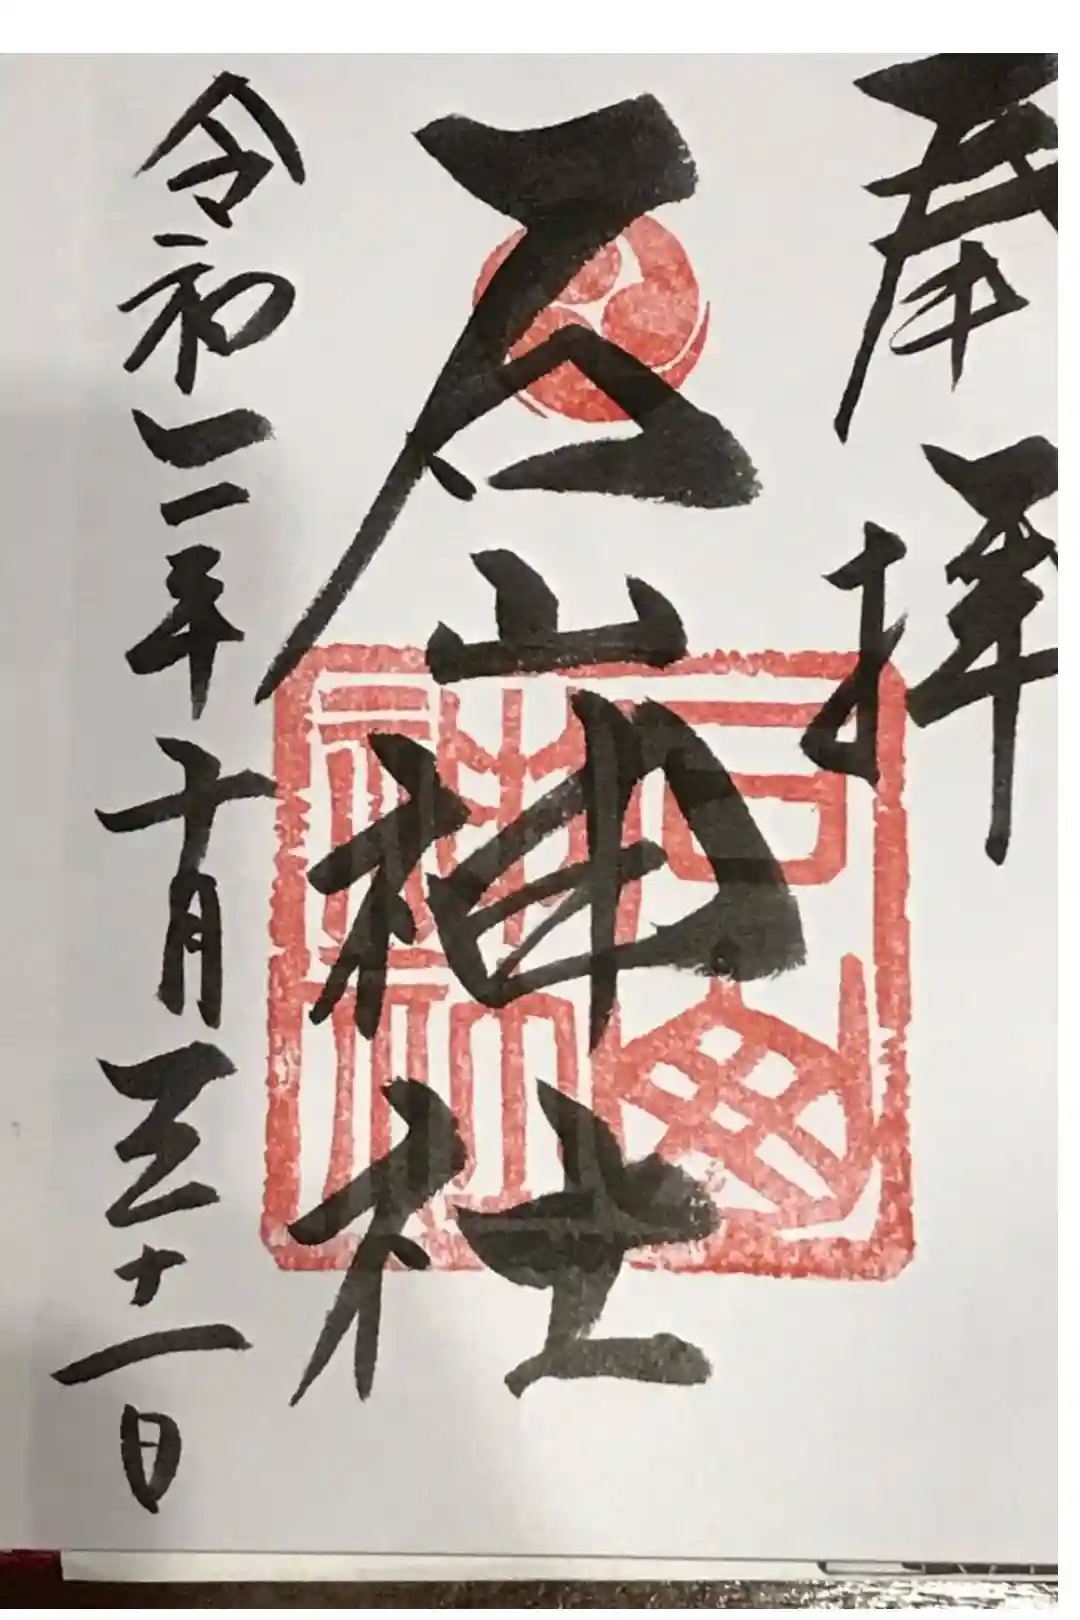 奉拝
石山神社
令和二年十月三十一日